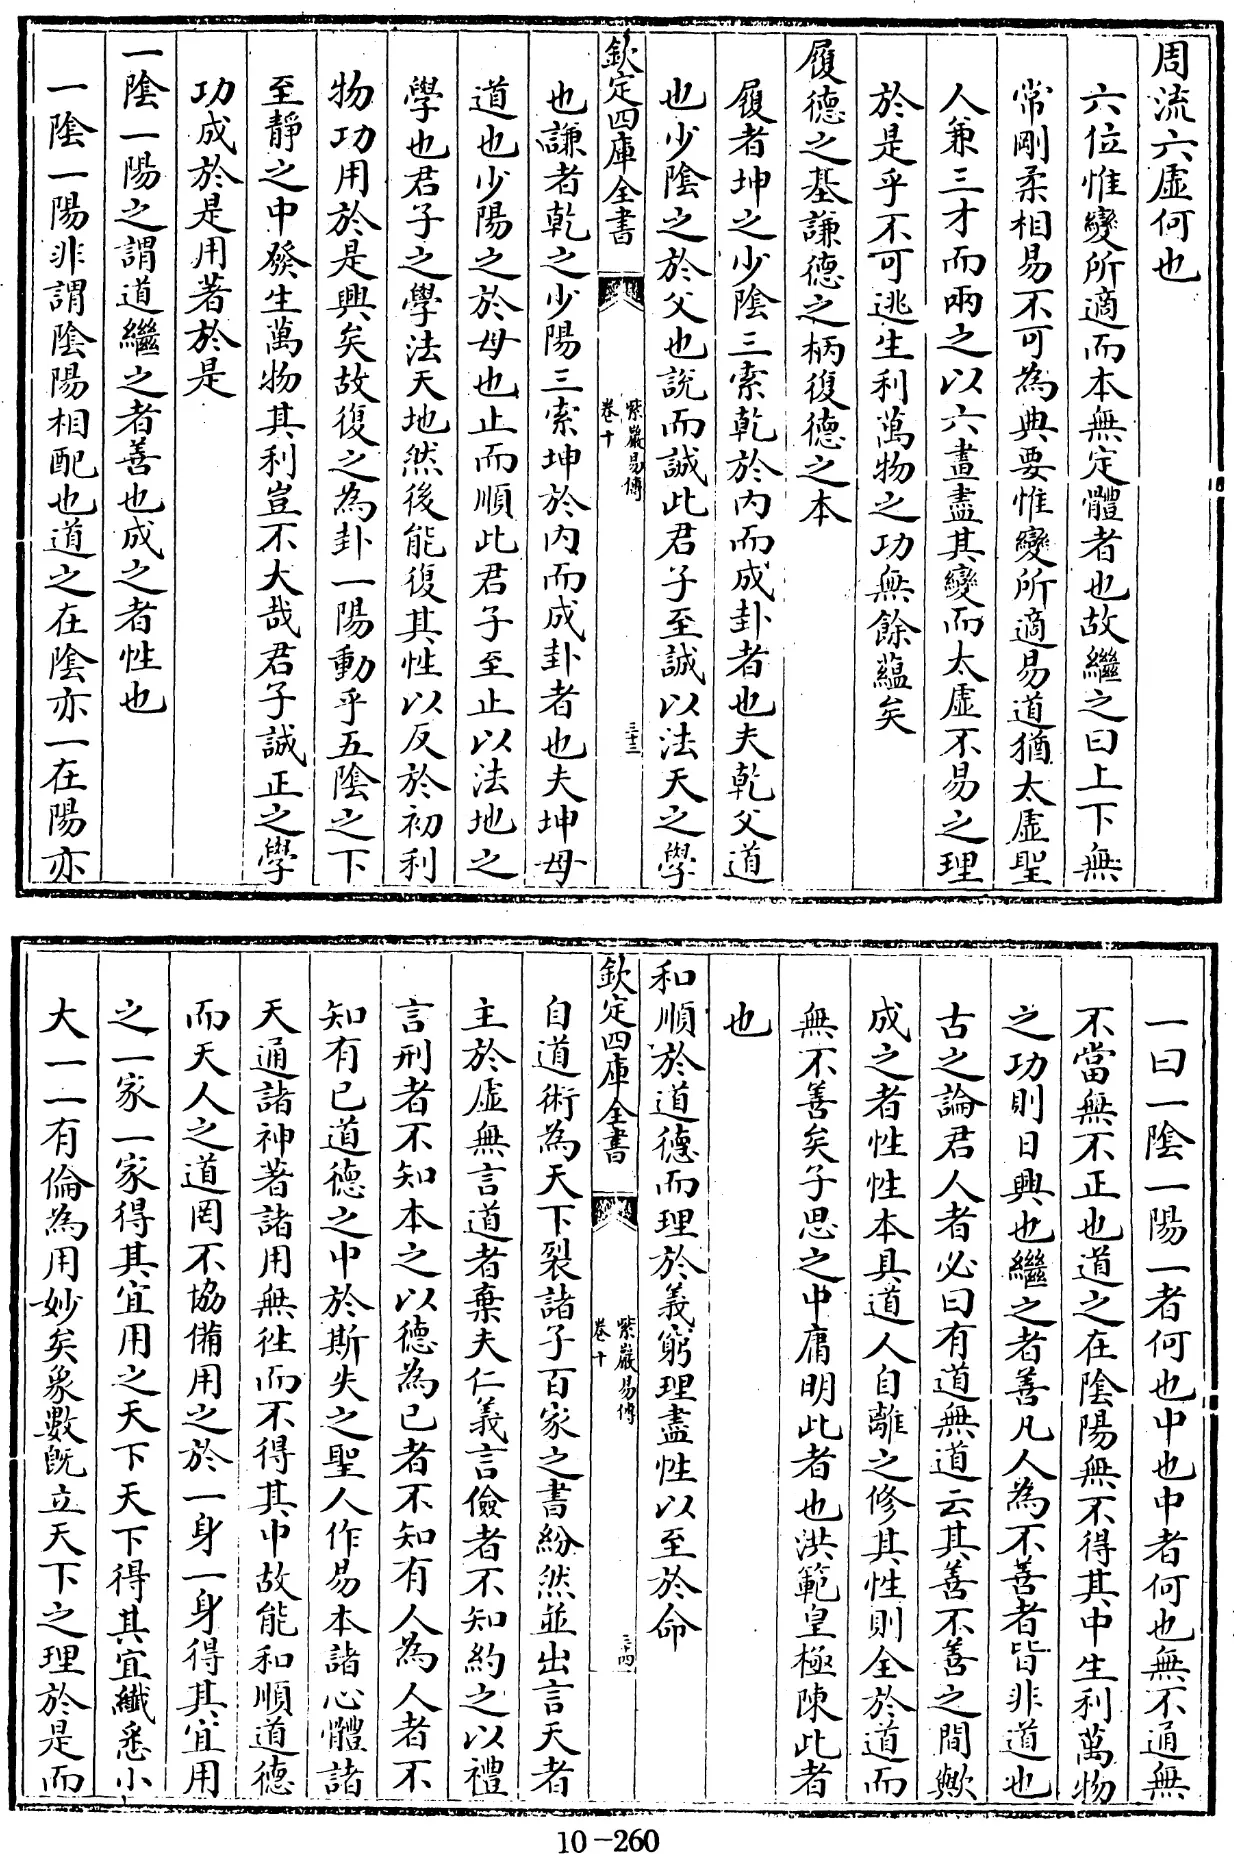 周流六虛何也
六位惟變所適而本無定體者也故繼之曰上下無
常剛柔相易不可為典要惟變所適易道猶太虛聖
人兼三才而兩之以六畫盡其變而太虛不易之理
於是乎不可逃生利萬物之功無餘藴矣
履德之基謙德之柄復德之本
履者坤之少陰三索乾於内而成卦者也夫乾父道
也少陰之於父也說而誠此君子至誠以法天之學
欽定四庫全書
紫巖易傳
卷十
三十三
也謙者乾之少陽三索坤於内而成卦者也夫坤母
道也少陽之於母也止而順此君子至止以法地之
學也君子之學法天地然後能復其性以反於初利
物功用於是興矣故復之為卦一陽動乎五陰之下
至靜之中發生萬物其利豈不大哉君子誠正之學
功成於是用著於是
一陰一陽之謂道繼之者善也成之者性也
一陰一陽非謂陰陽相配也道之在陰亦一在陽亦
一曰一陰一陽一者何也中也中者何也無不通無
不當無不正也道之在陰陽無不得其中生利萬物
之功則日興也繼之者善凡人為不善者皆非道也
古之論君人者必曰有道無道云其善不善之間歟
成之者性性本具道人自離之修其性則全於道而
無不善矣子思之中庸明此者也洪範皇極陳此者
也
和順於道德而理於義窮理盡性以至於命
欽定四庫全書
紫巖易傳
卷十
三十四
自道術為天下裂諸子百家之書紛然並出言天者
主於虛無言道者棄夫仁義言儉者不知約之以禮
言刑者不知本之以德為已者不知有人為人者不
知有已道德之中於斯失之聖人作易本諸心體諸
天通諸神著諸用無徃而不得其中故能和順道德
而天人之道罔不協備用之於一身一身得其宜用
之一家一家得其宜用之天下天下得其宜纎悉小
大一一有倫為用妙矣象數既立天下之理於是而
10-260